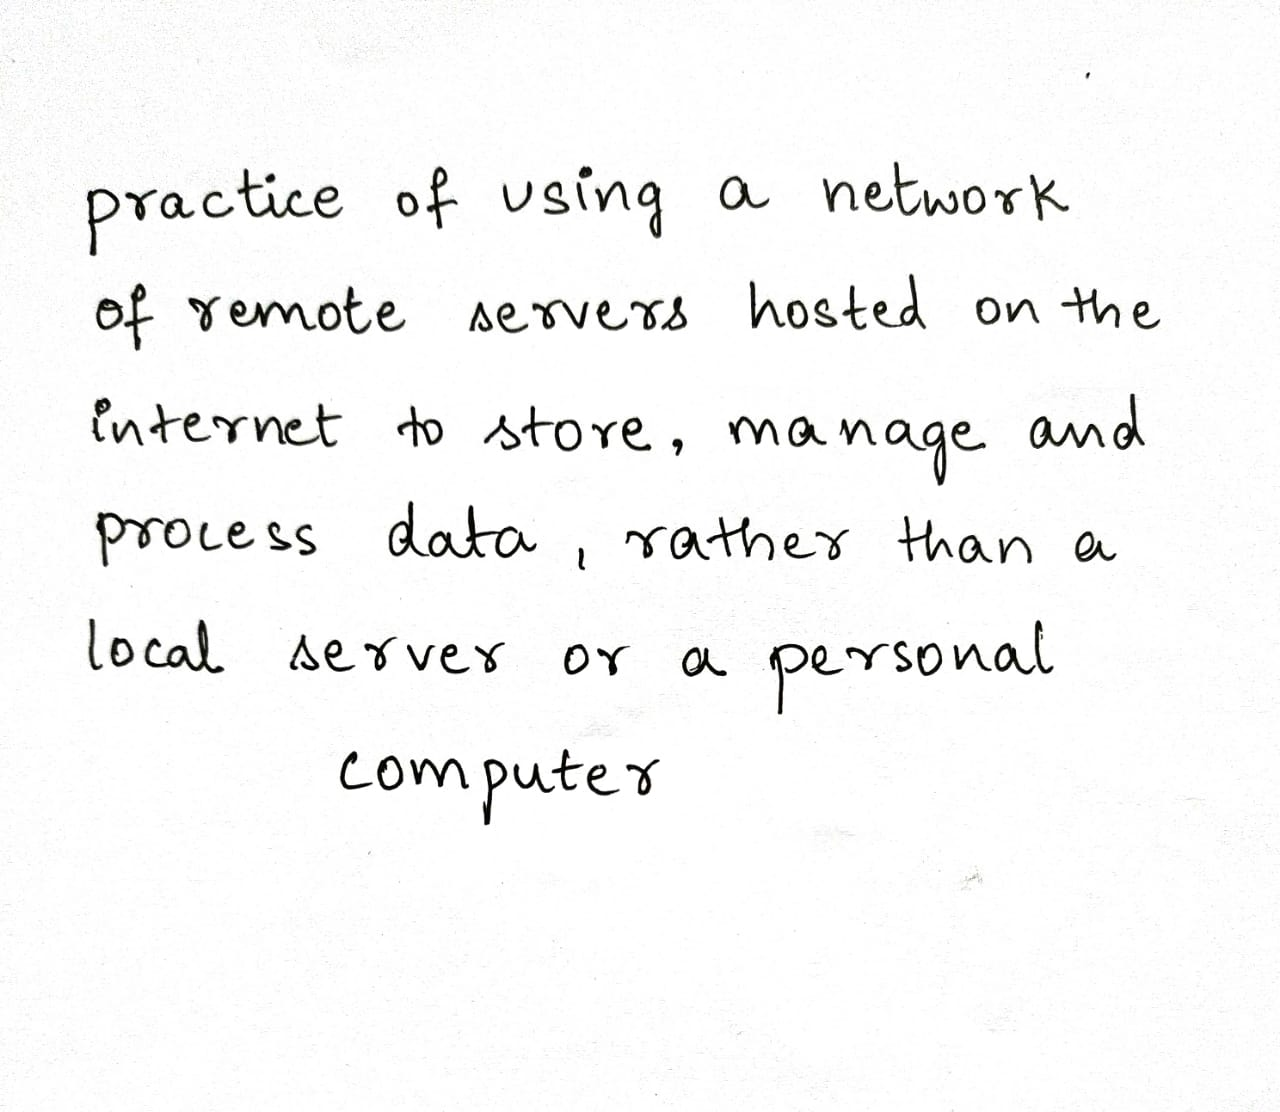 practice of using a network
of remote servers hosted on the
internet to store, manage and
process data, rather than a
local server or a personal
computer